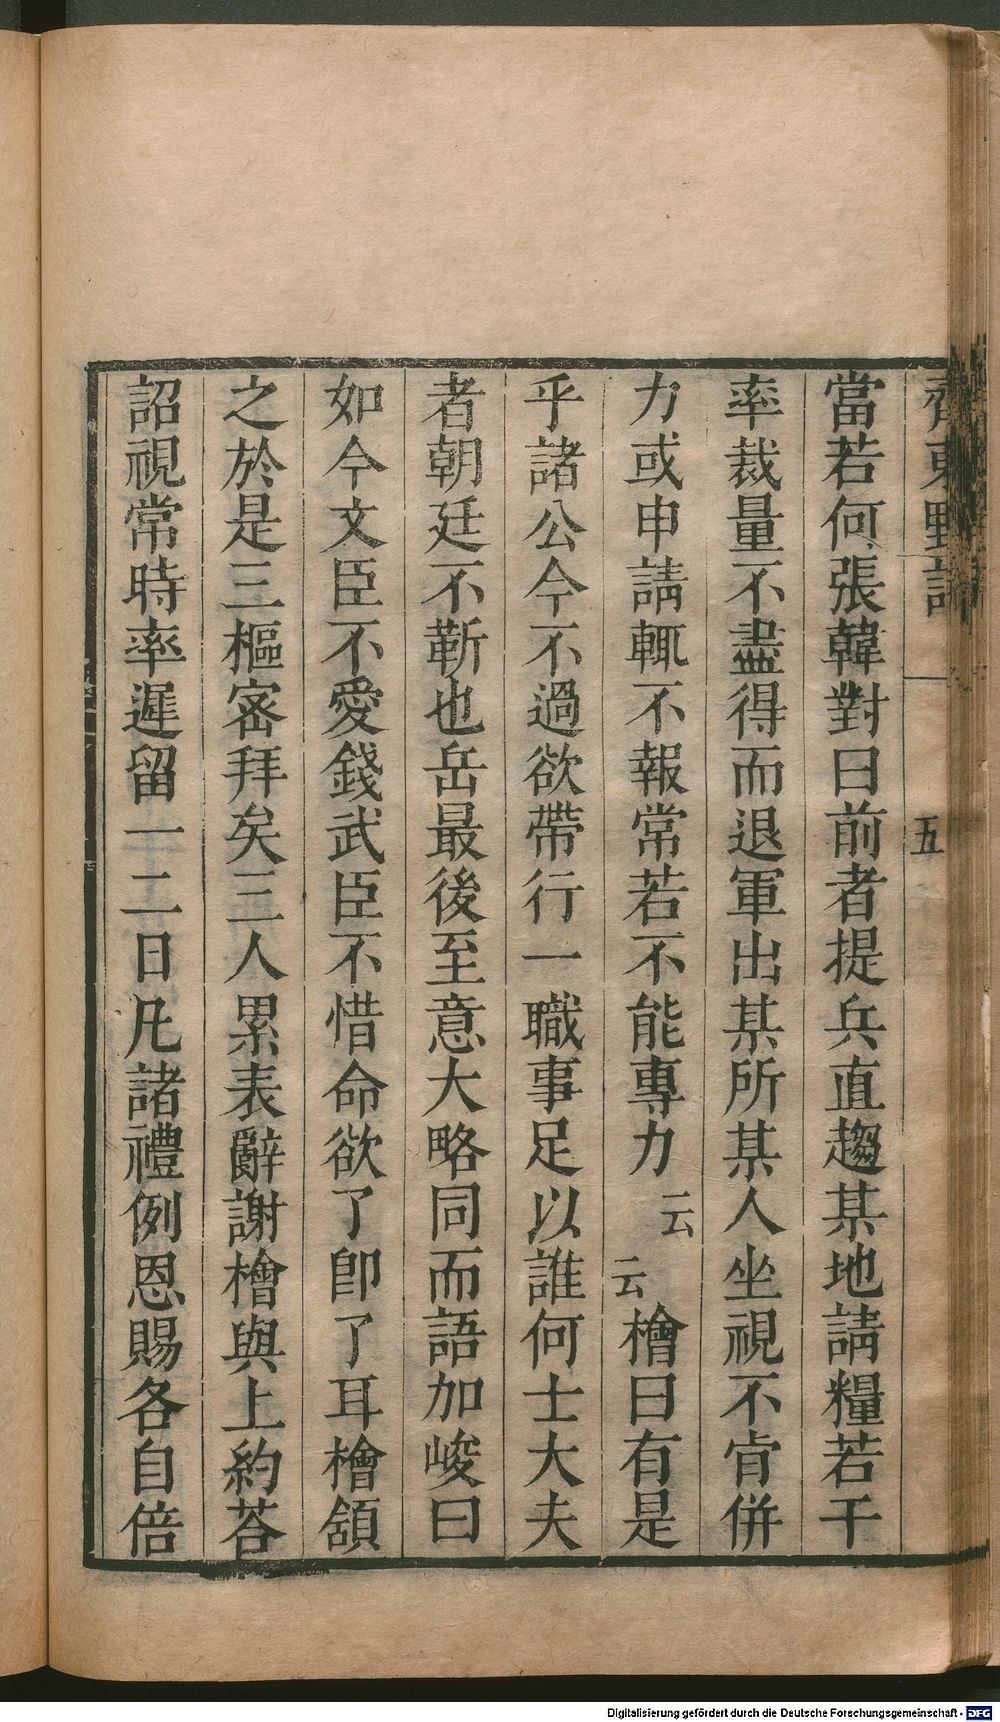 齊東野語
五
當若何張韓對曰前者提兵直趨某地請糧若干
率裁量不盡得而退軍出某所某人坐視不肯併
力或申請輒不報常若不能專力云云檜曰有是
乎諸公今不過欲帶行一職事足以誰何士大夫
者朝廷不靳也岳最後至意大略同而語加峻曰
如今文臣不愛錢武臣不惜命欲了卽了耳檜頷
之於是三樞宻拜矣三人累表辭謝檜與上約荅
詔視常時率遲留一二日凡諸禮例恩賜各自倍
Digitalisierung gefördert durch die Deutsche Forschungsgemeinschaft - DFG